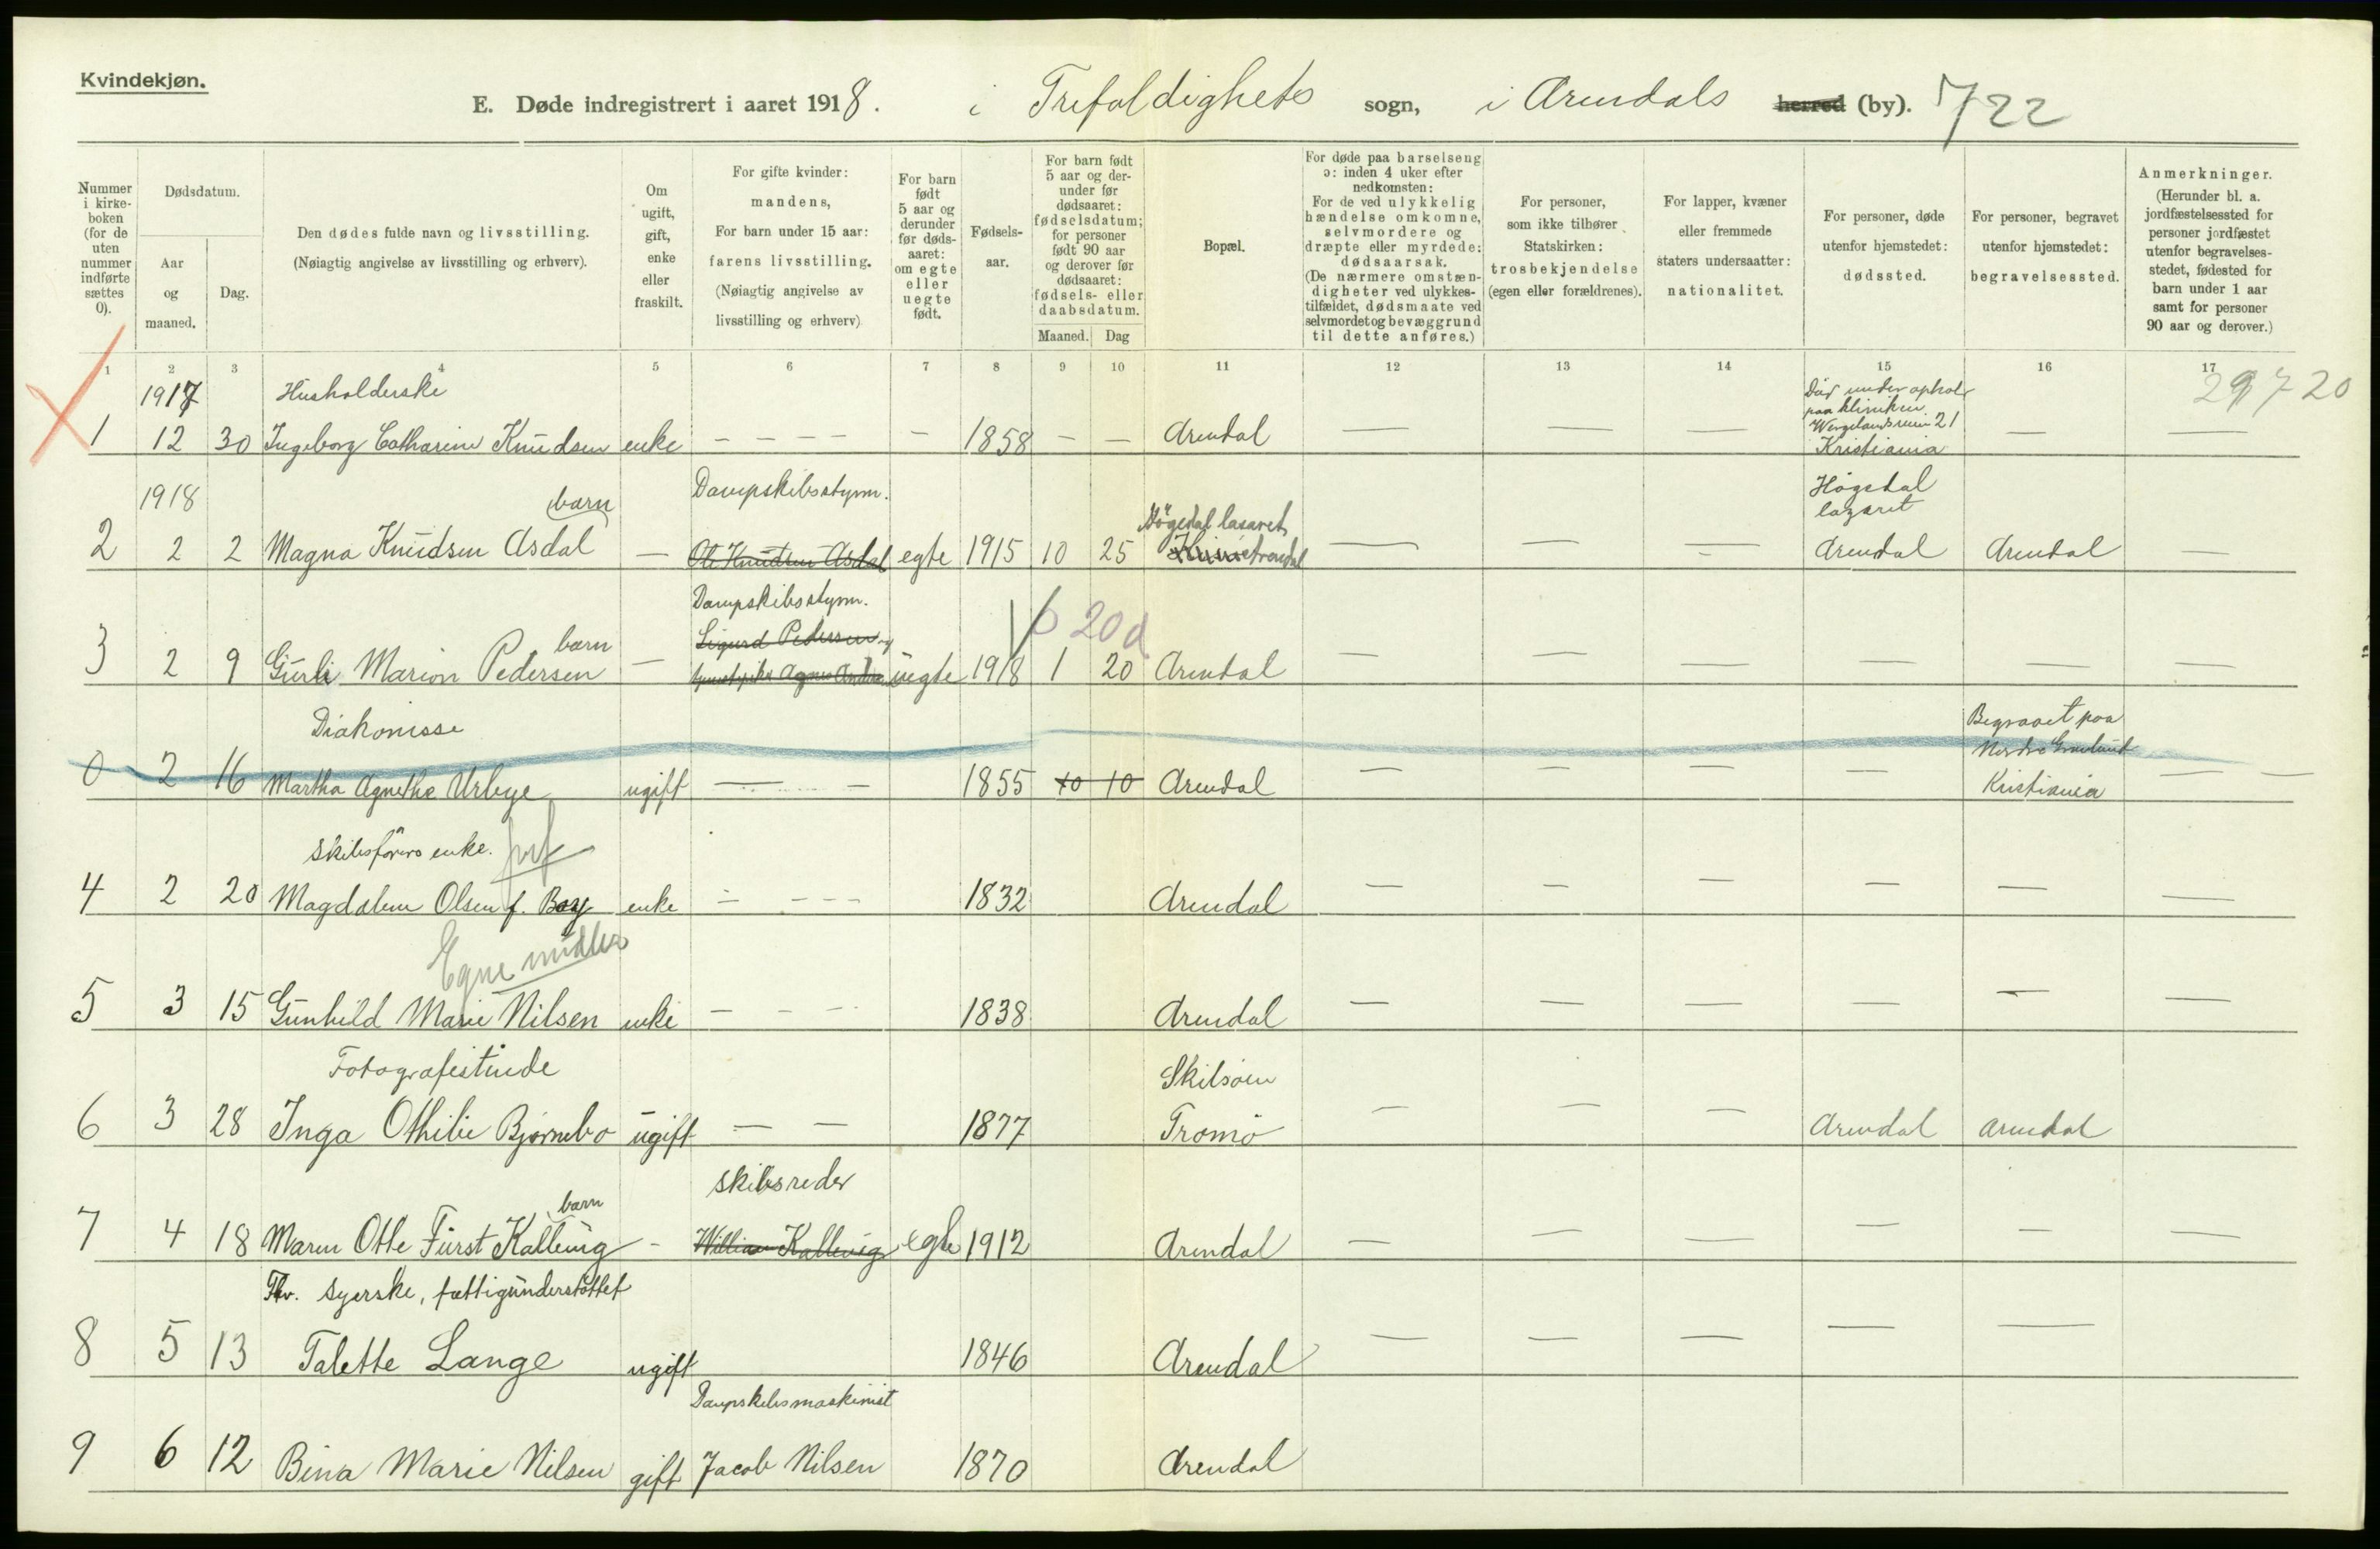 Kvindekjøn.
E. Døde indregistrert i aaret 1918. i Trefoldigheds sogn, i Arendals herred (by). 722
Nummer i kirkeboken (for de uten nummer indførte sættes 0).
Dødsdatum.
Aar og maaned.
Dag.
Den dødes fulde navn og livsstilling.
(Nøiagtig angivelse av livsstilling og erhverv).
Om ugift, gift, enke eller fraskilt.
For gifte kvinder: mandens,
For barn under 15 aar: farens livsstilling.
(Nøiagtig angivelse av livsstilling og erhverv)
For barn født 5 aar og derunder før dødsaaret: om egte eller uegte født.
Fødselsaar.
For barn født 5 aar og derunder før dødsaaret: fødselsdatum; for personer født 90 aar og derover før dødsaaret: fødsels- eller daabsdatum.
Maaned. Dag
Bopæl.
For døde paa barselseng ɔ: inden 4 uker efter nedkomsten:
For de ved ulykkelig hændelse omkomne, selvmordere og dræpte eller myrdede: dødsaarsak.
(De nærmere omstændigheter ved ulykkestilfældet, dødsmaate ved selvmordet og bevæggrund til dette anføres.)
For personer, som ikke tilhører Statskirken: trosbekjendelse (egen eller forældrenes).
For lapper, kvæner eller fremmede staters undersaatter: nationalitet.
For personer, døde utenfor hjemstedet: dødssted.
For personer, begravet utenfor hjemstedet: begravelsessted.
Anmerkninger.
(Herunder bl. a. jordfæstelsessted for personer jordfæstet utenfor begravelsesstedet, fødested for barn under 1 aar samt for personer 90 aar og derover.)
1 2 3 4 5 6 7 8 9 10 11 12 13 14 15 16 17
1917 Husholderske Død under ophold paa kliniken 21 29720
1 12 30 Ingeborg Catharine Knudsen enke – – – – – 1858 – – Arendal — — — Kristiania — —
1918 barn Dampskibsstyrm. Høgedal lasaret Høgedal lazaret
2 2 2 Magna Knudsen Asdal — Ole Knudsen Asdal egte 1915 10 25 Arendal — — – Arendal Arendal —
Dampskibsstyrm. 20 d
barn Sigurd Pedersen og
3 2 9 Gurli Marion Pedersen — uegte 1918 1 20 Arendal — — — — — —
Diakonisse Begravet paa Nordre Gravlund
0 2 16 Martha Agnethe Urbye ugift — — 1855 10 10 Arendal — — — — Kristiania — —
Skibsførers enke.
4 2 20 Magdalene Olsen f. Boy enke – – – – 1832 Arendal — — — — — —
Egne midler
5 3 15 Gunhild Marie Nilsen enke – – – 1838 Arendal — — — — — —
Fotografistinde Skilsøen
6 3 28 Inga Othilie Bjørnebo ugift — — 1877 Tromø — — — Arendal Arendal
barn skibsreder
7 4 18 Maren Otte Fürst Kallevig – William Kallevig egte 1912 Arendal — — — — — —
Fhv. syerske, fattigunderstøttet
8 5 13 Talette Lange ugift 1846 Arendal — — — — —
Dampskibsmaskinist
9 6 12 Bina Marie Nilsen gift Jacob Nilsen 1870 Arendal